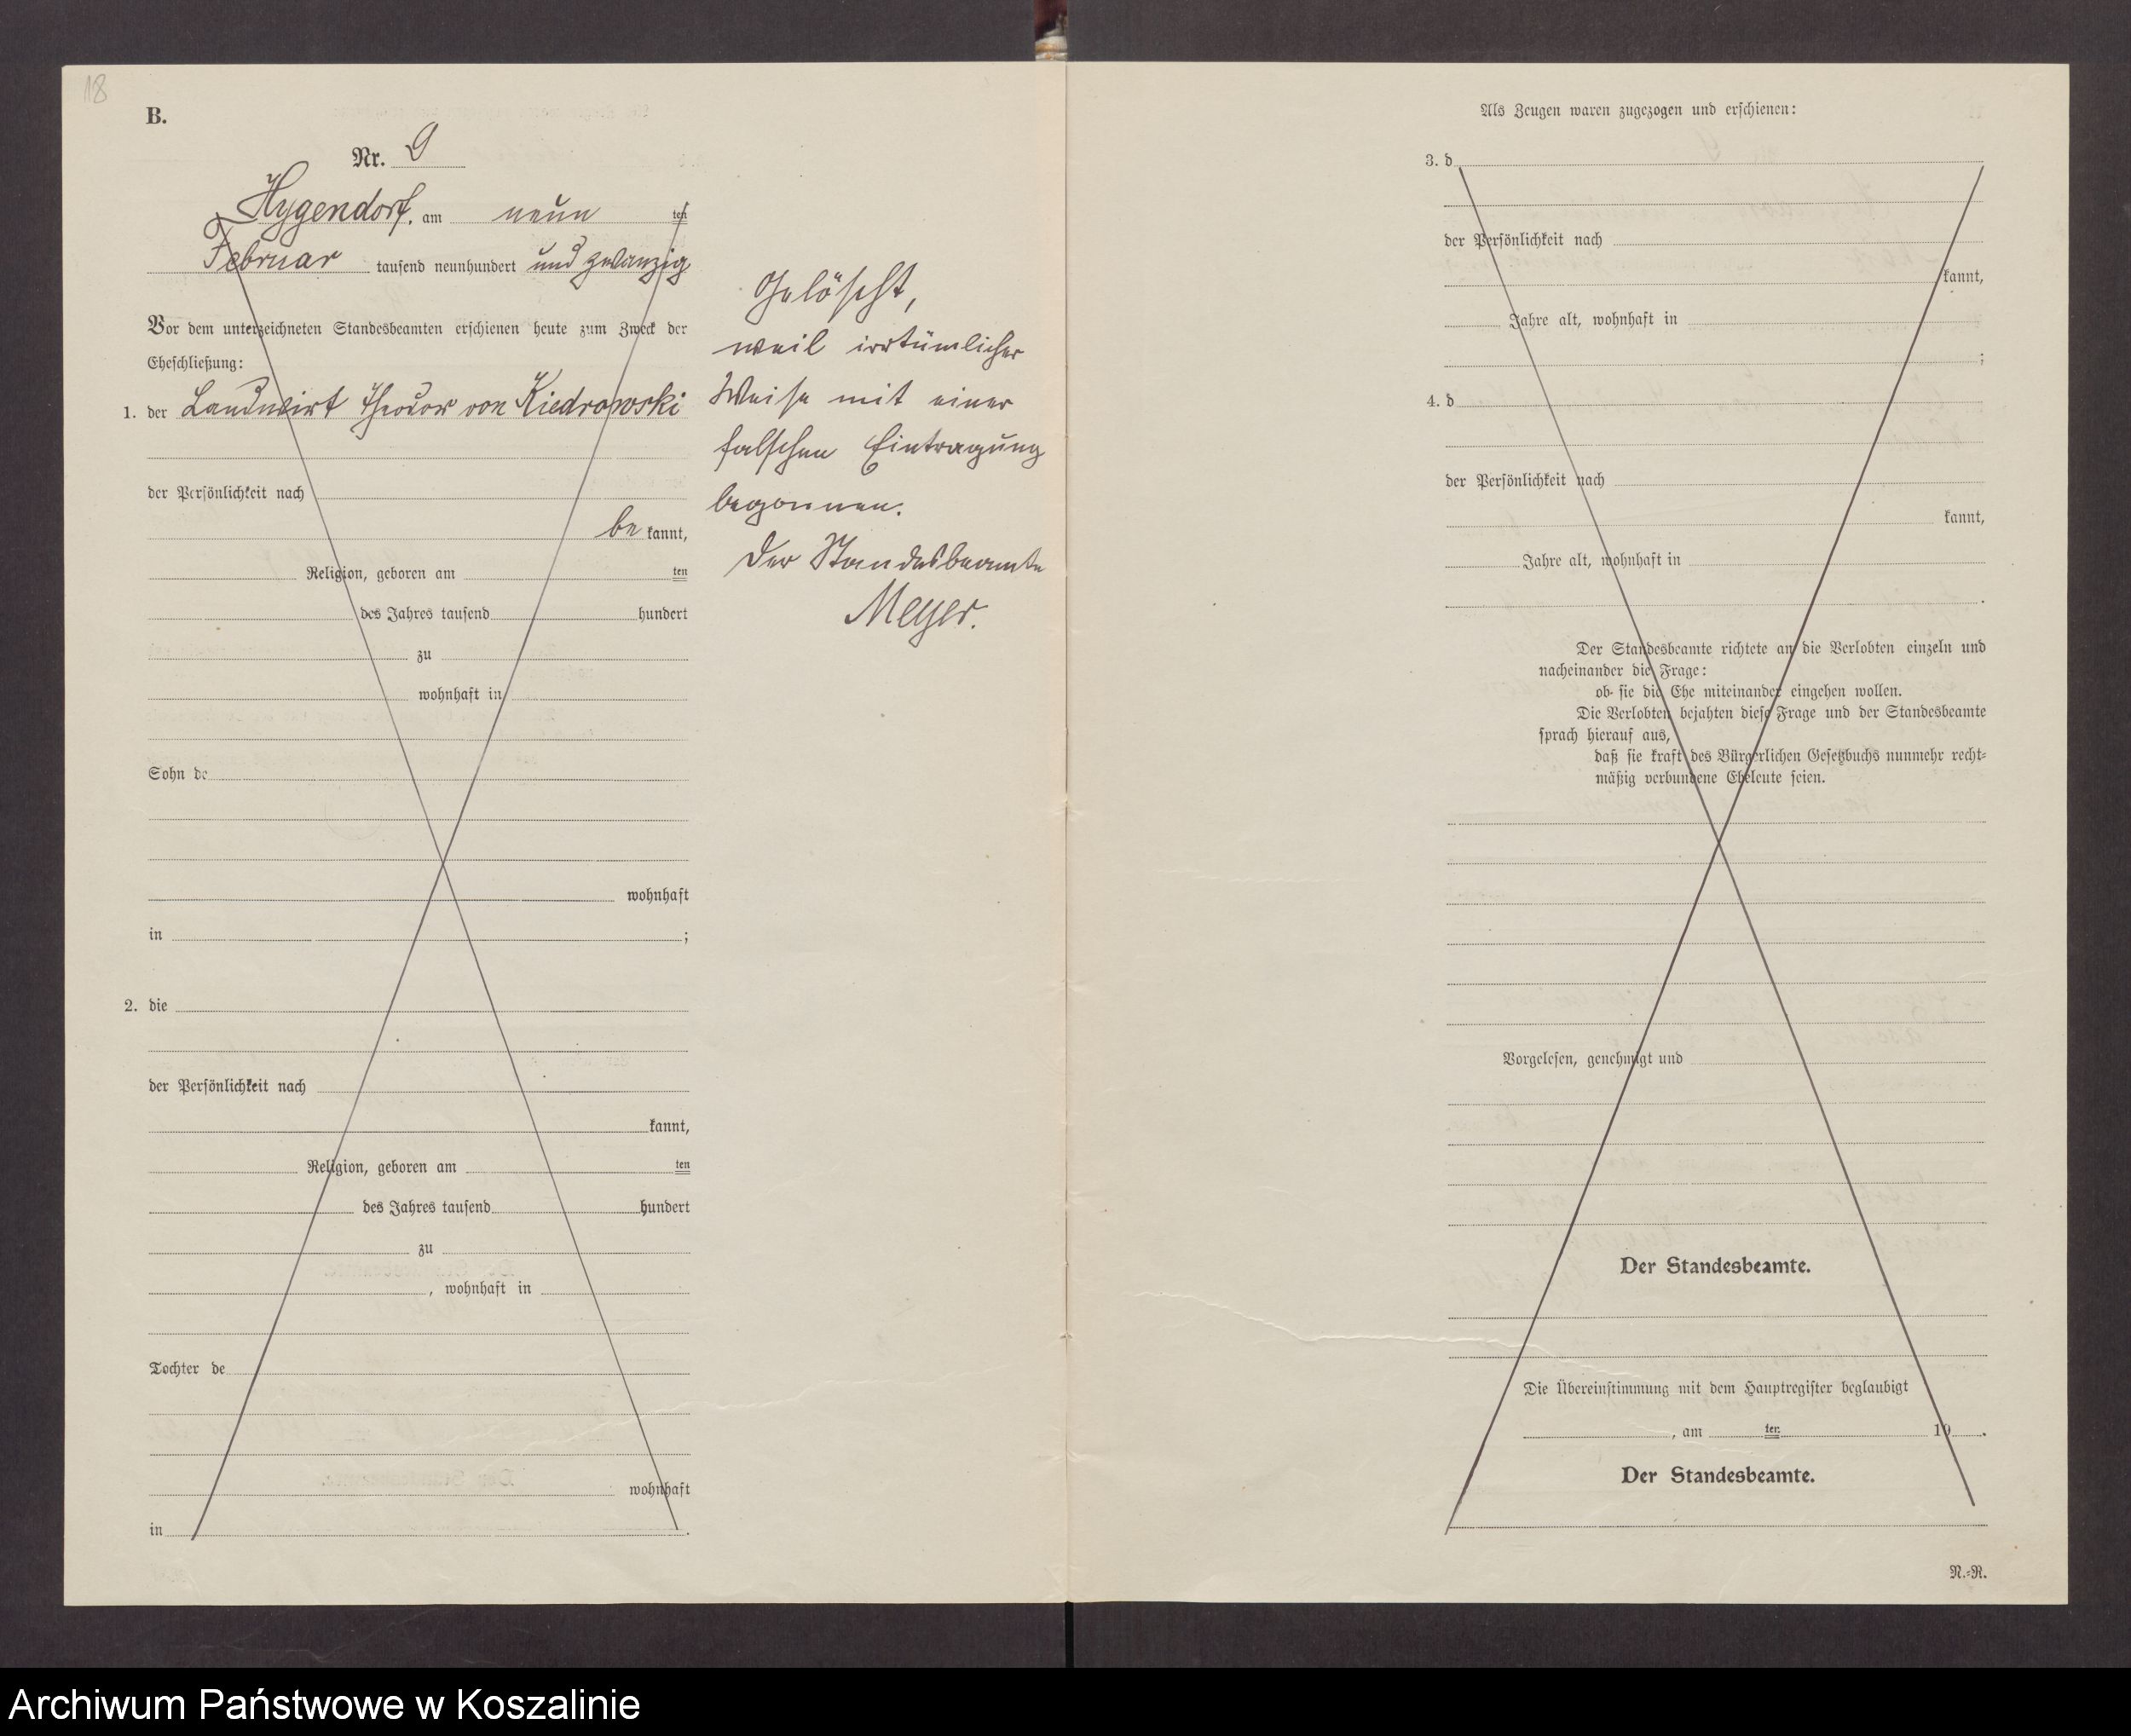 18
B.
Nr. 9
Hygendorf, am neun ten
Februar tausend neunhundert und zwanzig
Vor dem unterzeichneten Standesbeamten erschienen heute zum Zweck der
Eheschließung:
1. der Landwirt Theodor von Kiedrowski
der Persönlichkeit nach
be kannt,
Religion, geboren am ten
des Jahres tausend hundert
zu
wohnhaft in
Sohn de
wohnhaft
in ;
2. die
der Persönlichkeit nach
kannt,
Religion, geboren am ten
des Jahres tausend hundert
zu
, wohnhaft in
Tochter de
wohnhaft
in .
Gelöscht,
weil irrtümlicher
Weise mit einer
falschen Eintragung
begonnen.
Der Standesbeamte
Meyer.
Als Zeugen waren zugezogen und erschienen:
3. d
der Persönlichkeit nach
kannt,
Jahre alt, wohnhaft in
;
4. d
der Persönlichkeit nach
kannt,
Jahre alt, wohnhaft in
.
Der Standesbeamte richtete an die Verlobten einzeln und
nacheinander die Frage:
ob sie die Ehe miteinander eingehen wollen.
Die Verlobten bejahten diese Frage und der Standesbeamte
sprach hierauf aus,
daß sie kraft des Bürgerlichen Gesetzbuchs nunmehr recht-
mäßig verbundene Eheleute seien.
Vorgelesen, genehmigt und
Der Standesbeamte.
Die Übereinstimmung mit dem Hauptregister beglaubigt
, am ten 19 .
Der Standesbeamte.
N.-R.
Archiwum Państwowe w Koszalinie